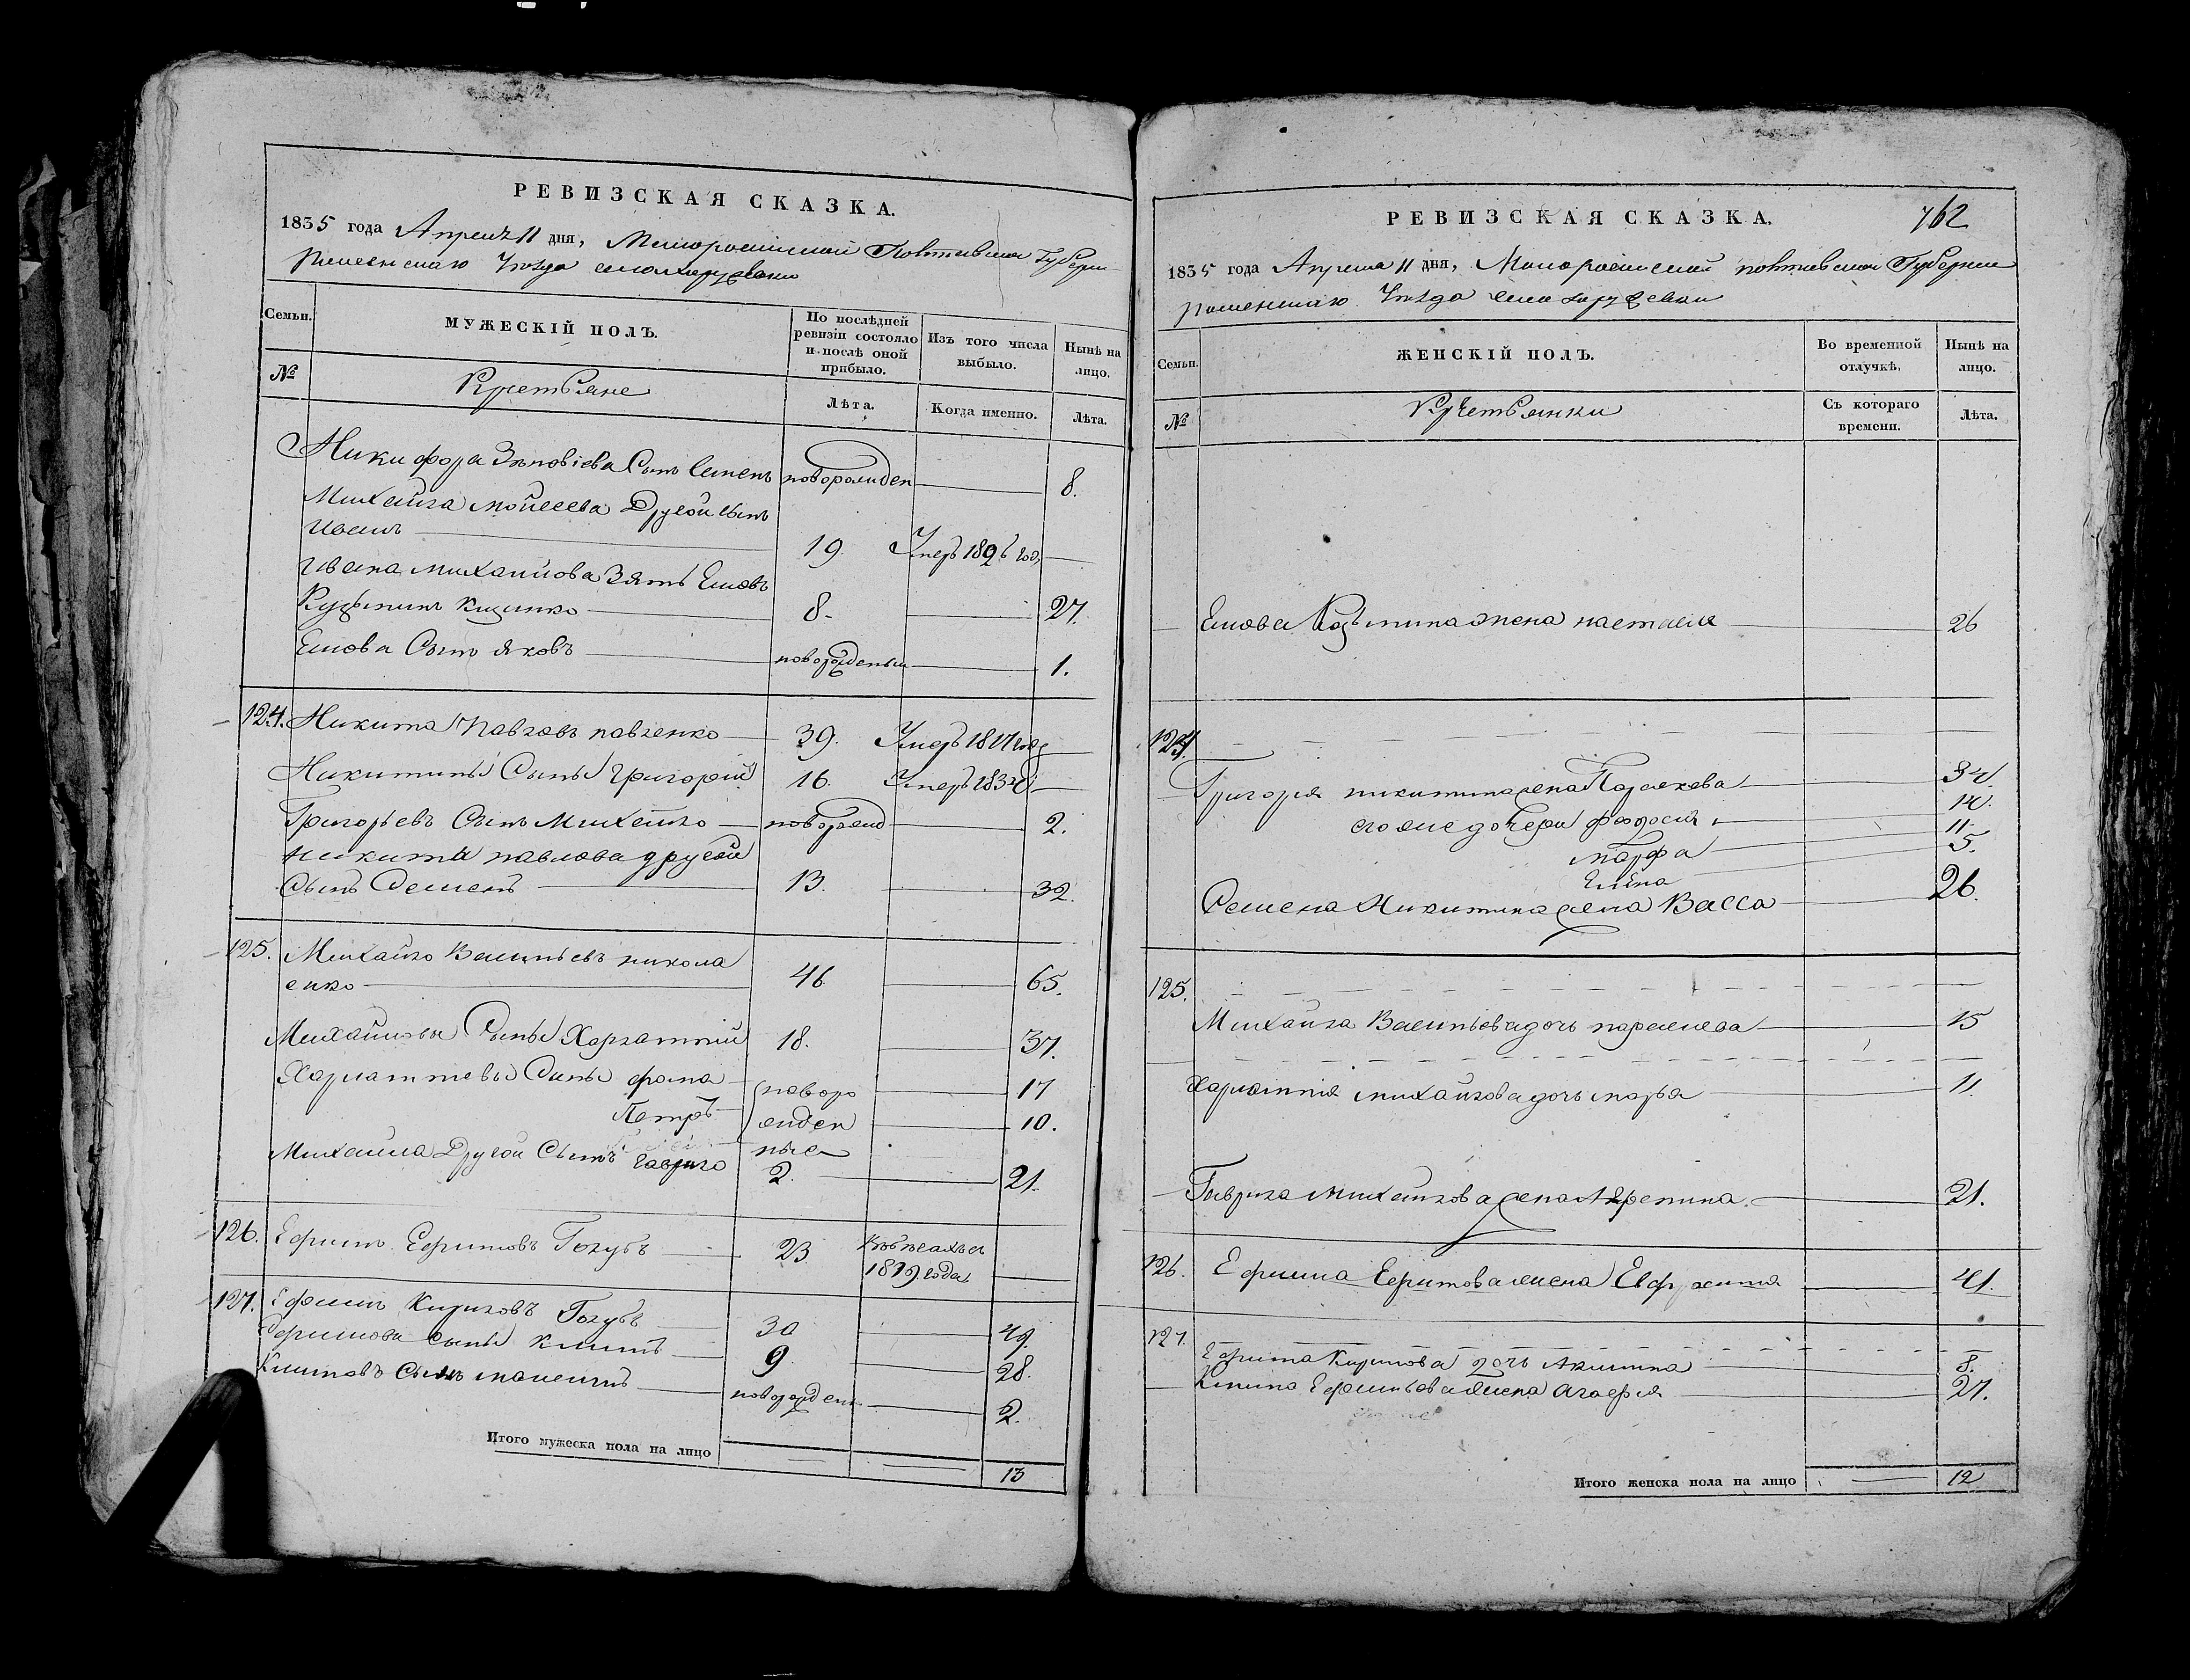 РЕВИЗСКАЯ СКАЗКА.
1835 года Апреля 11 дня, Малоросийской Полтавской Губернии
Роменскаго Уезда села
Семьи.
МУЖЕСКІЙ ПОЛЪ.
По послѣдней ревизіи состояло и послѣ оной прибыло.
Изъ того числа выбыло.
Нынѣ на лицо.
№
Крестьяне
Лѣта.
Когда именно.
Лѣта.
Никифора Зѣновіева Сынъ Семенъ новорожден 8.
Михайла Мойсеева Другой сынъ
Иванъ 19. Умеръ 1826 год
Ивана Михайлова Зять Еиовъ
Кузьминъ 8. 27.
Сынъ Яковъ новорожденый 1.
124. Никита Павловъ павленко 39. Умеръ 1817 год
Никитины Сыны Григорій 16. Умеръ 1834
Григорьевъ Сынъ Михайло новорожд 2.
Никиты павлова другой
Сынъ Семенъ 13. 32.
125. Михайло Васильевъ никола
енко 46 65.
Михайловы Сыны Харлампій 18. 37.
Харлампіевы Сыны фома новоро 17
Петръ жден 10.
ные
Михайла Другой Сынъ Гаврило 2. 21.
126. Ефимъ Ефимовъ Голубъ 23 Въ бегахъ съ
1819 года
127. Ефимъ Кириловъ Голубъ 30 49.
Ефимовы сыны Климъ 9 28.
Климовъ Сынъ новорожден 2.
Итого мужеска пола на лицо 13
РЕВИЗСКАЯ СКАЗКА.
762
1835 года Апреля 11 дня, Малоросийской полтавской Губернии
Роменскаго Уезда села
Семьи.
ЖЕНСКІЙ ПОЛЪ.
Во временной отлучкѣ.
Нынѣ на лицо.
№
Крестьянки
Съ котораго времени.
Лѣта.
Козьмина жена настасия 26
124.
Григория никитина жена Параскева 34.
его же дочери феодосия 14.
марфа 11.
Елена 5.
Семена Никитина жена Васса 26.
125.
Михайла Васильева дочь параскева 15
Харлампия михайлова дочь марья 11.
Гаврила Михайлова жена 21.
126. Ефима Ефимова жена Евфросиния 41.
127.
Ефима Кирилова дочь Акилина 8.
Клима Ефимова жена Агафия 27.
Итого женска пола на лицо 12